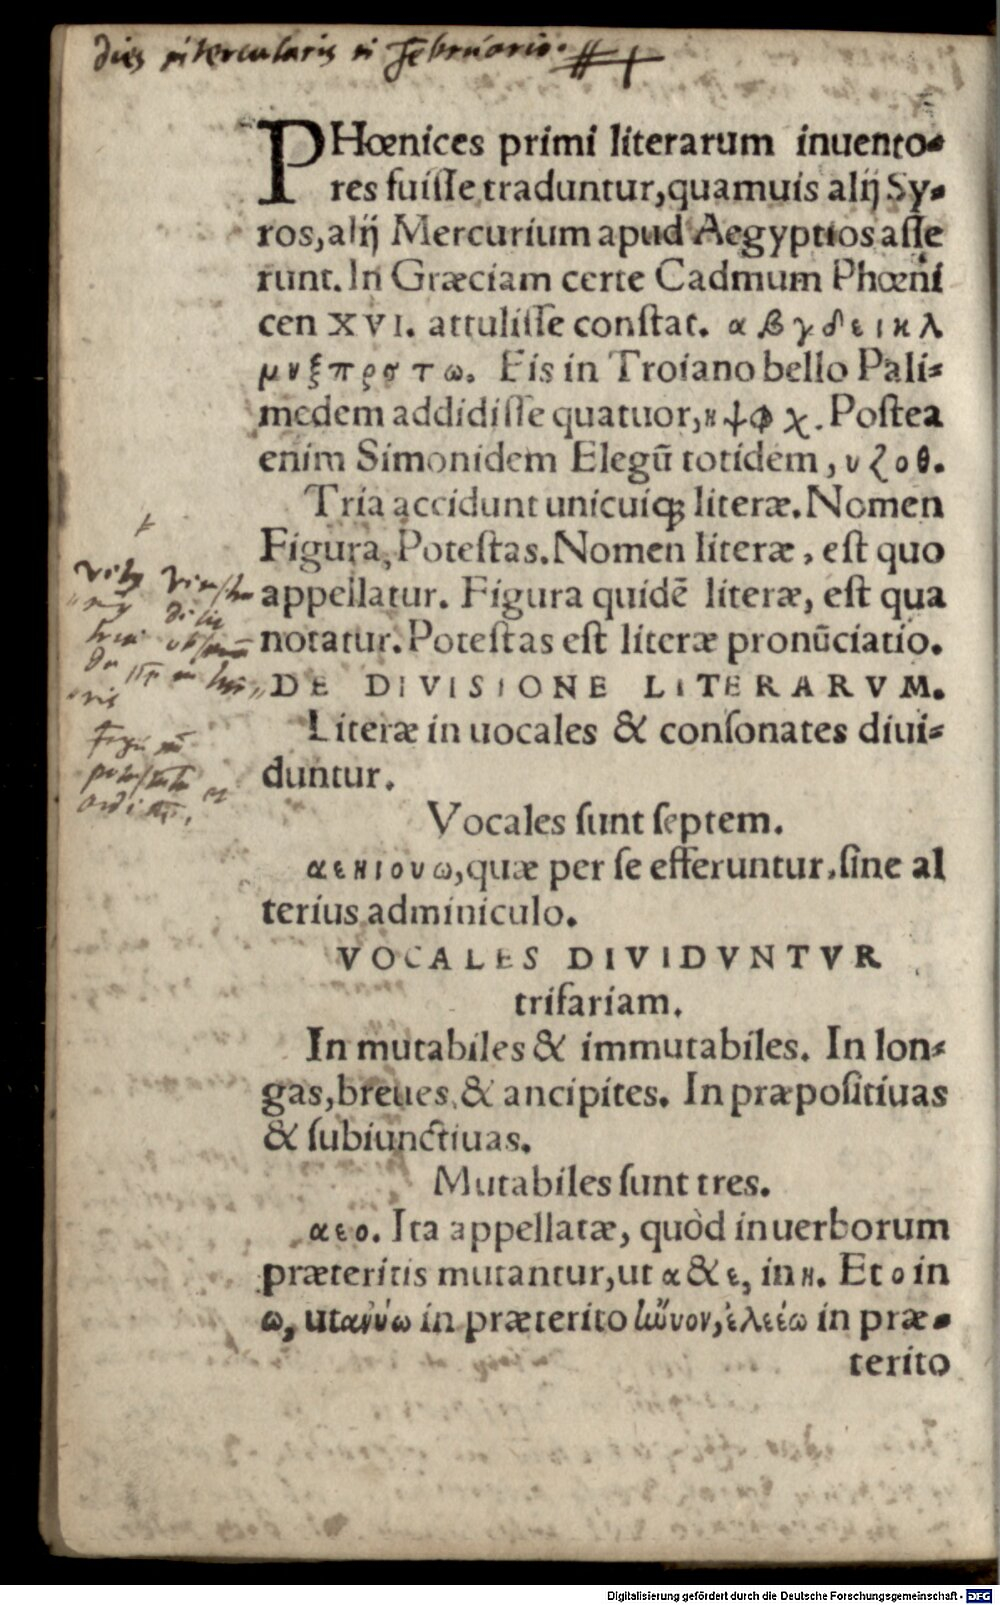 dies intercularis in Februario.
PHœnices primi literarum inuento-
res fuiſſe traduntur, quamuis alij Sy-
ros, alij Mercurium apud Aegyptios aſſe
runt. In Græciam certe Cadmum Phœni
cen XVI. attuliſſe conſtat. α β γ δ ε ι κ λ
μ ν ξ π ρ σ τ ω. Eis in Troiano bello Pali-
medem addidiſſe quatuor, η ψ φ χ. Poſtea
enim Simonidem Elegū totidem, υ ζ ο θ.
Tria accidunt unicuiqꝫ literæ. Nomen
Figura, Poteſtas. Nomen literæ, eſt quo
appellatur. Figura quidē literæ, eſt qua
notatur. Poteſtas eſt literæ pronūciatio.
DE DIVISIONE LITERARVM.
Literæ in uocales & conſonates diui-
duntur.
Vocales ſunt ſeptem.
α ε η ι ο υ ω, quæ per ſe efferuntur, ſine al
terius adminiculo.
VOCALES DIVIDVNTVR
trifariam.
In mutabiles & immutabiles. In lon-
gas, breues, & ancipites. In præpoſitiuas
& ſubiunctiuas.
Mutabiles ſunt tres.
α ε ο. Ita appellatæ, quòd in uerborum
præteritis mutantur, ut α & ε, in η. Et ο in
ω, ut in præterito ἐλεέω in præ-
terito
Digitalisierung gefördert durch die Deutsche Forschungsgemeinschaft - DFG